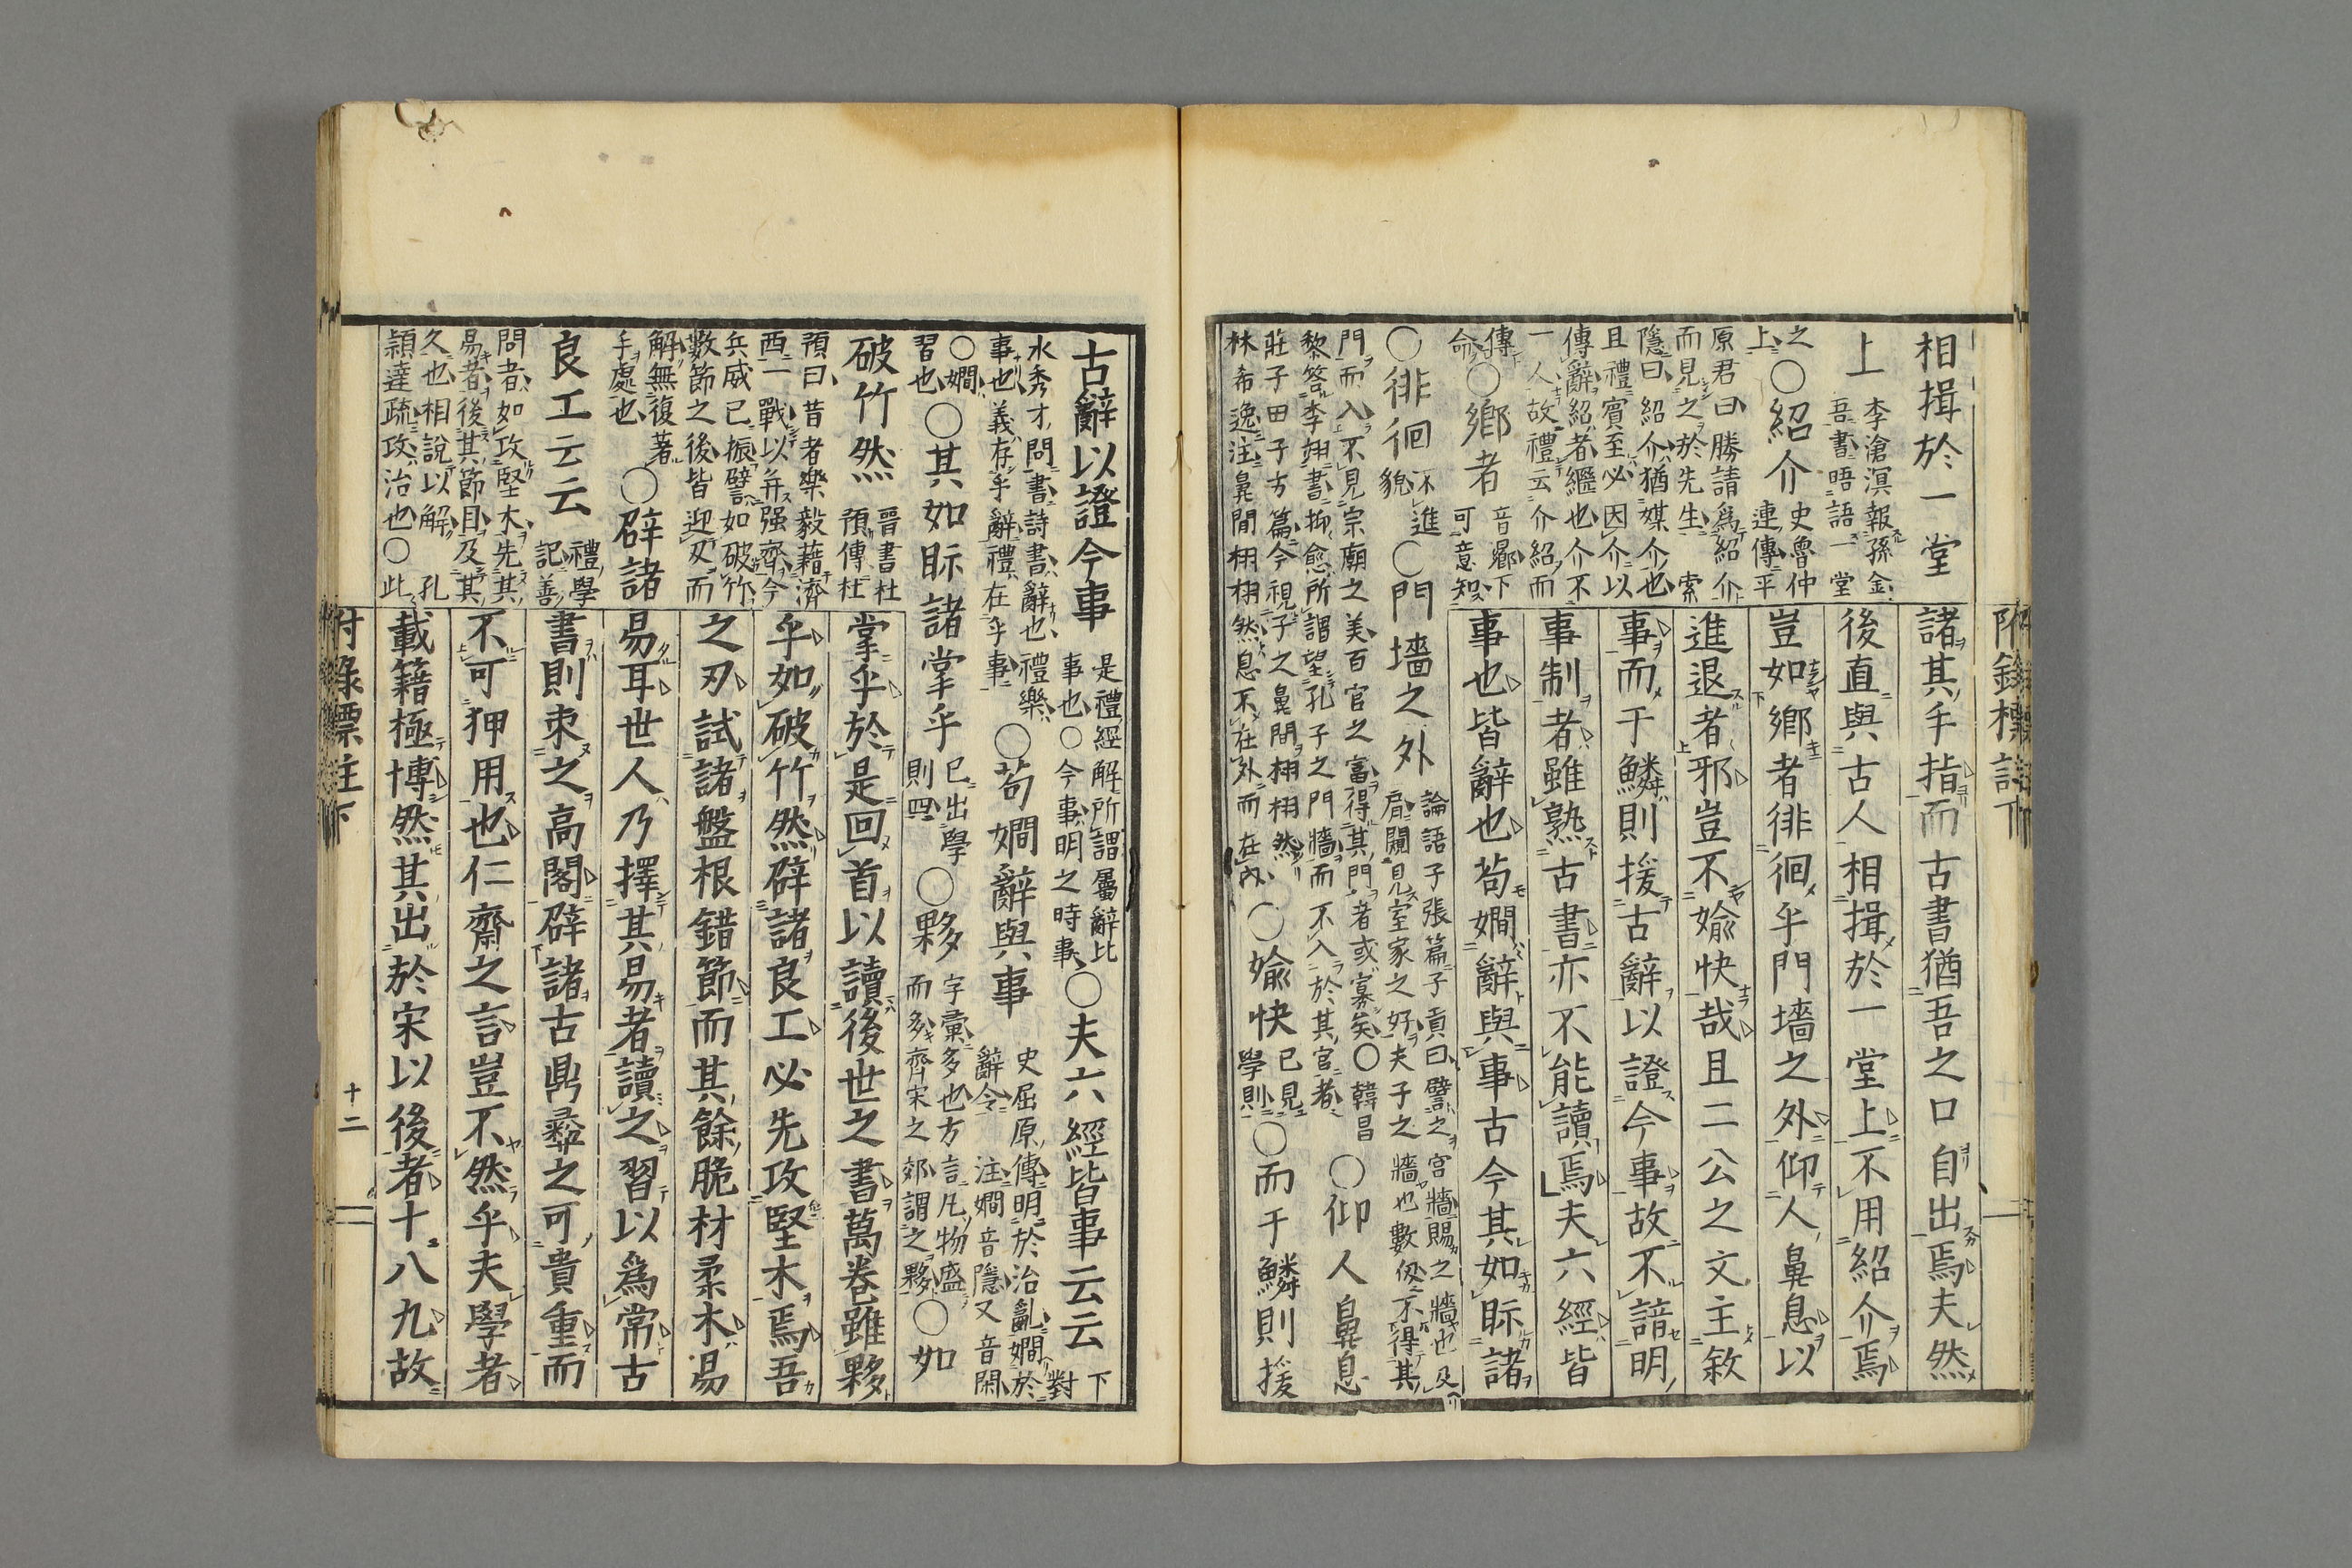 附錄標註下
相揖於一堂
上
李滄溟報孫金
吾書晤語一堂
之
上
○紹介
史魯仲
連傳平
原君曰勝請爲紹介
而見之於先生索
隱曰紹介猶媒介也
且禮賓至必因介以
傳辭紹者繼也介不
一人故禮云介紹而
傳
命
○鄉者
音嚮下
可意知
○徘徊
不進
貌
○門墻之外
論語子張篇子貢曰譬之宮牆賜之牆也及
肩闚見室家之好夫子之牆也數仞不得其
門而入不見宗廟之美百官之富得其門者或寡矣○韓昌
黎答李翊書抑愈所謂望孔子之門牆而不入於其宮者
○仰人鼻息
莊子田子方篇今視子之鼻間栩栩然
林希逸注鼻間栩栩然息不在外而在內
○婾快
已見
學則
○而于鱗則援
諸其手指而古書猶吾之口自出焉夫然
後直與古人相揖於一堂上不用紹介焉
豈如鄉者徘徊乎門墻之外仰人鼻息以
進退者邪豈不婾快哉且二公之文主敘
事而于鱗則援古辭以證今事故不諳明
事制者雖熟古書亦不能讀焉夫六經皆
事也皆辭也茍嫺辭與事古今其如眎諸
古辭以證今事
是禮經解所謂屬辭比
事也○今事明之時事
○夫六經皆事云云
下
對
水秀才問書詩書辭也禮樂
事也義存乎辭禮在乎事
○茍嫺辭與事
史屈原傳明於治亂嫺於
辭令注嫺音隱又音閑
○嫺
習也
○其如眎諸掌乎
已出學
則四
○夥
字彙多也方言凡物盛
而多齊宋之郊謂之夥
○如
破竹然
晉書杜
預傳杜
預曰昔者樂毅藉濟
西一戰以并强齊今
兵威已振譬如破竹
數節之後皆迎刃而
解無復著
手處也
○辟諸
良工云云
禮學
記善
問者如攻堅木先其
易者後其節目及其
久也相說以解孔
頴達疏攻治也○此
掌乎於是回首以讀後世之書萬卷雖夥
乎如破竹然辟諸良工必先攻堅木焉吾
之刃試諸盤根錯節而其餘脆材柔木易
易耳世人乃擇其易者讀之習以爲常古
書則束之高閣辟諸古鼎彝之可貴重而
不可狎用也仁齋之言豈不然乎夫學者
載籍極博然其出於宋以後者十八九故
付錄標註下
十二